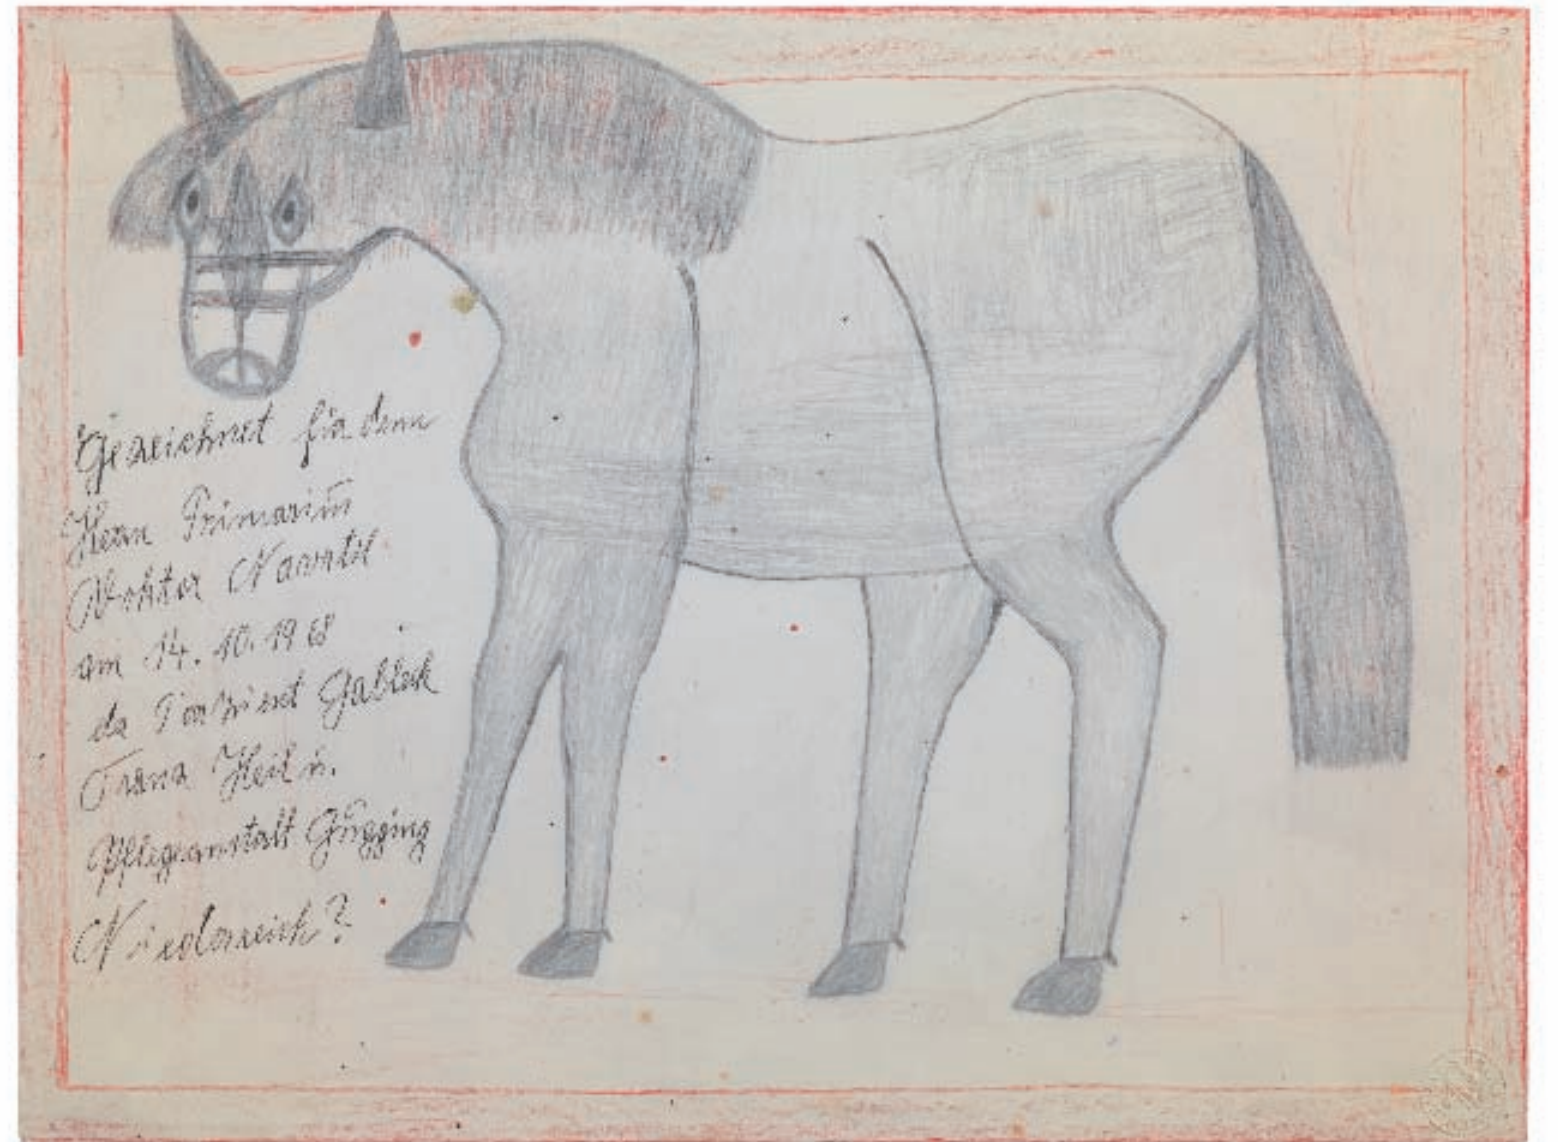 Gezeichnet für denn
Herrn Primariŭs
Dokter Navratil
am 14. 10. 1968
da Patzient Gableck
Franz Heil ŭ.
Pflegeanstalt Gŭgging
Niedorreich?